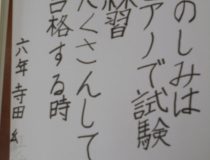 のしみは
アノで試験
練習
たくさんして
合格する時
六年 寺田